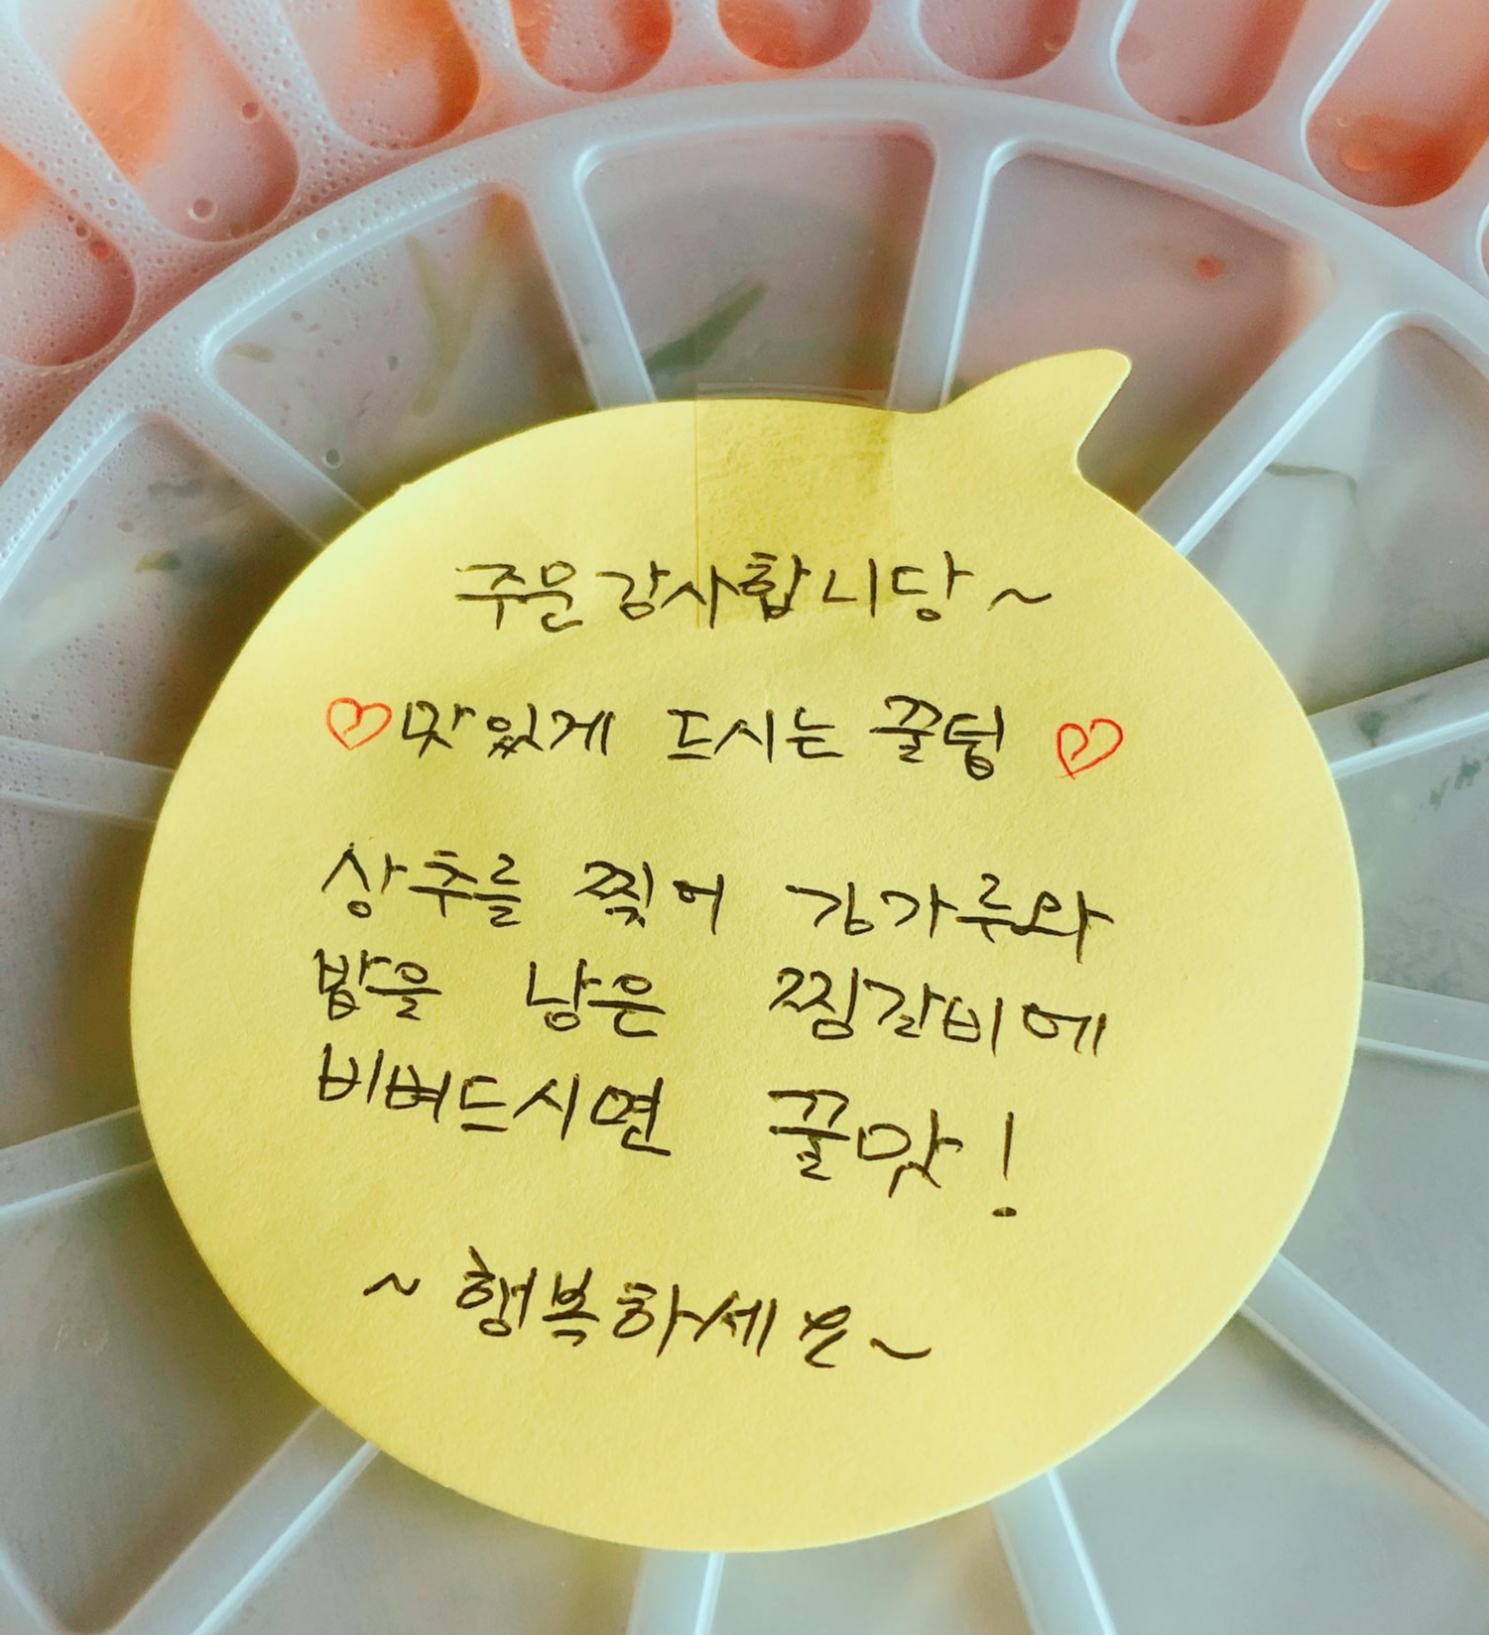 주문감사합니당~
♡맛있게 드시는 꿀팁♡
상추를 찢어 김가루와
밥을 낭은 찜갈비에
비벼드시면 꿀맛!
~행복하세요~